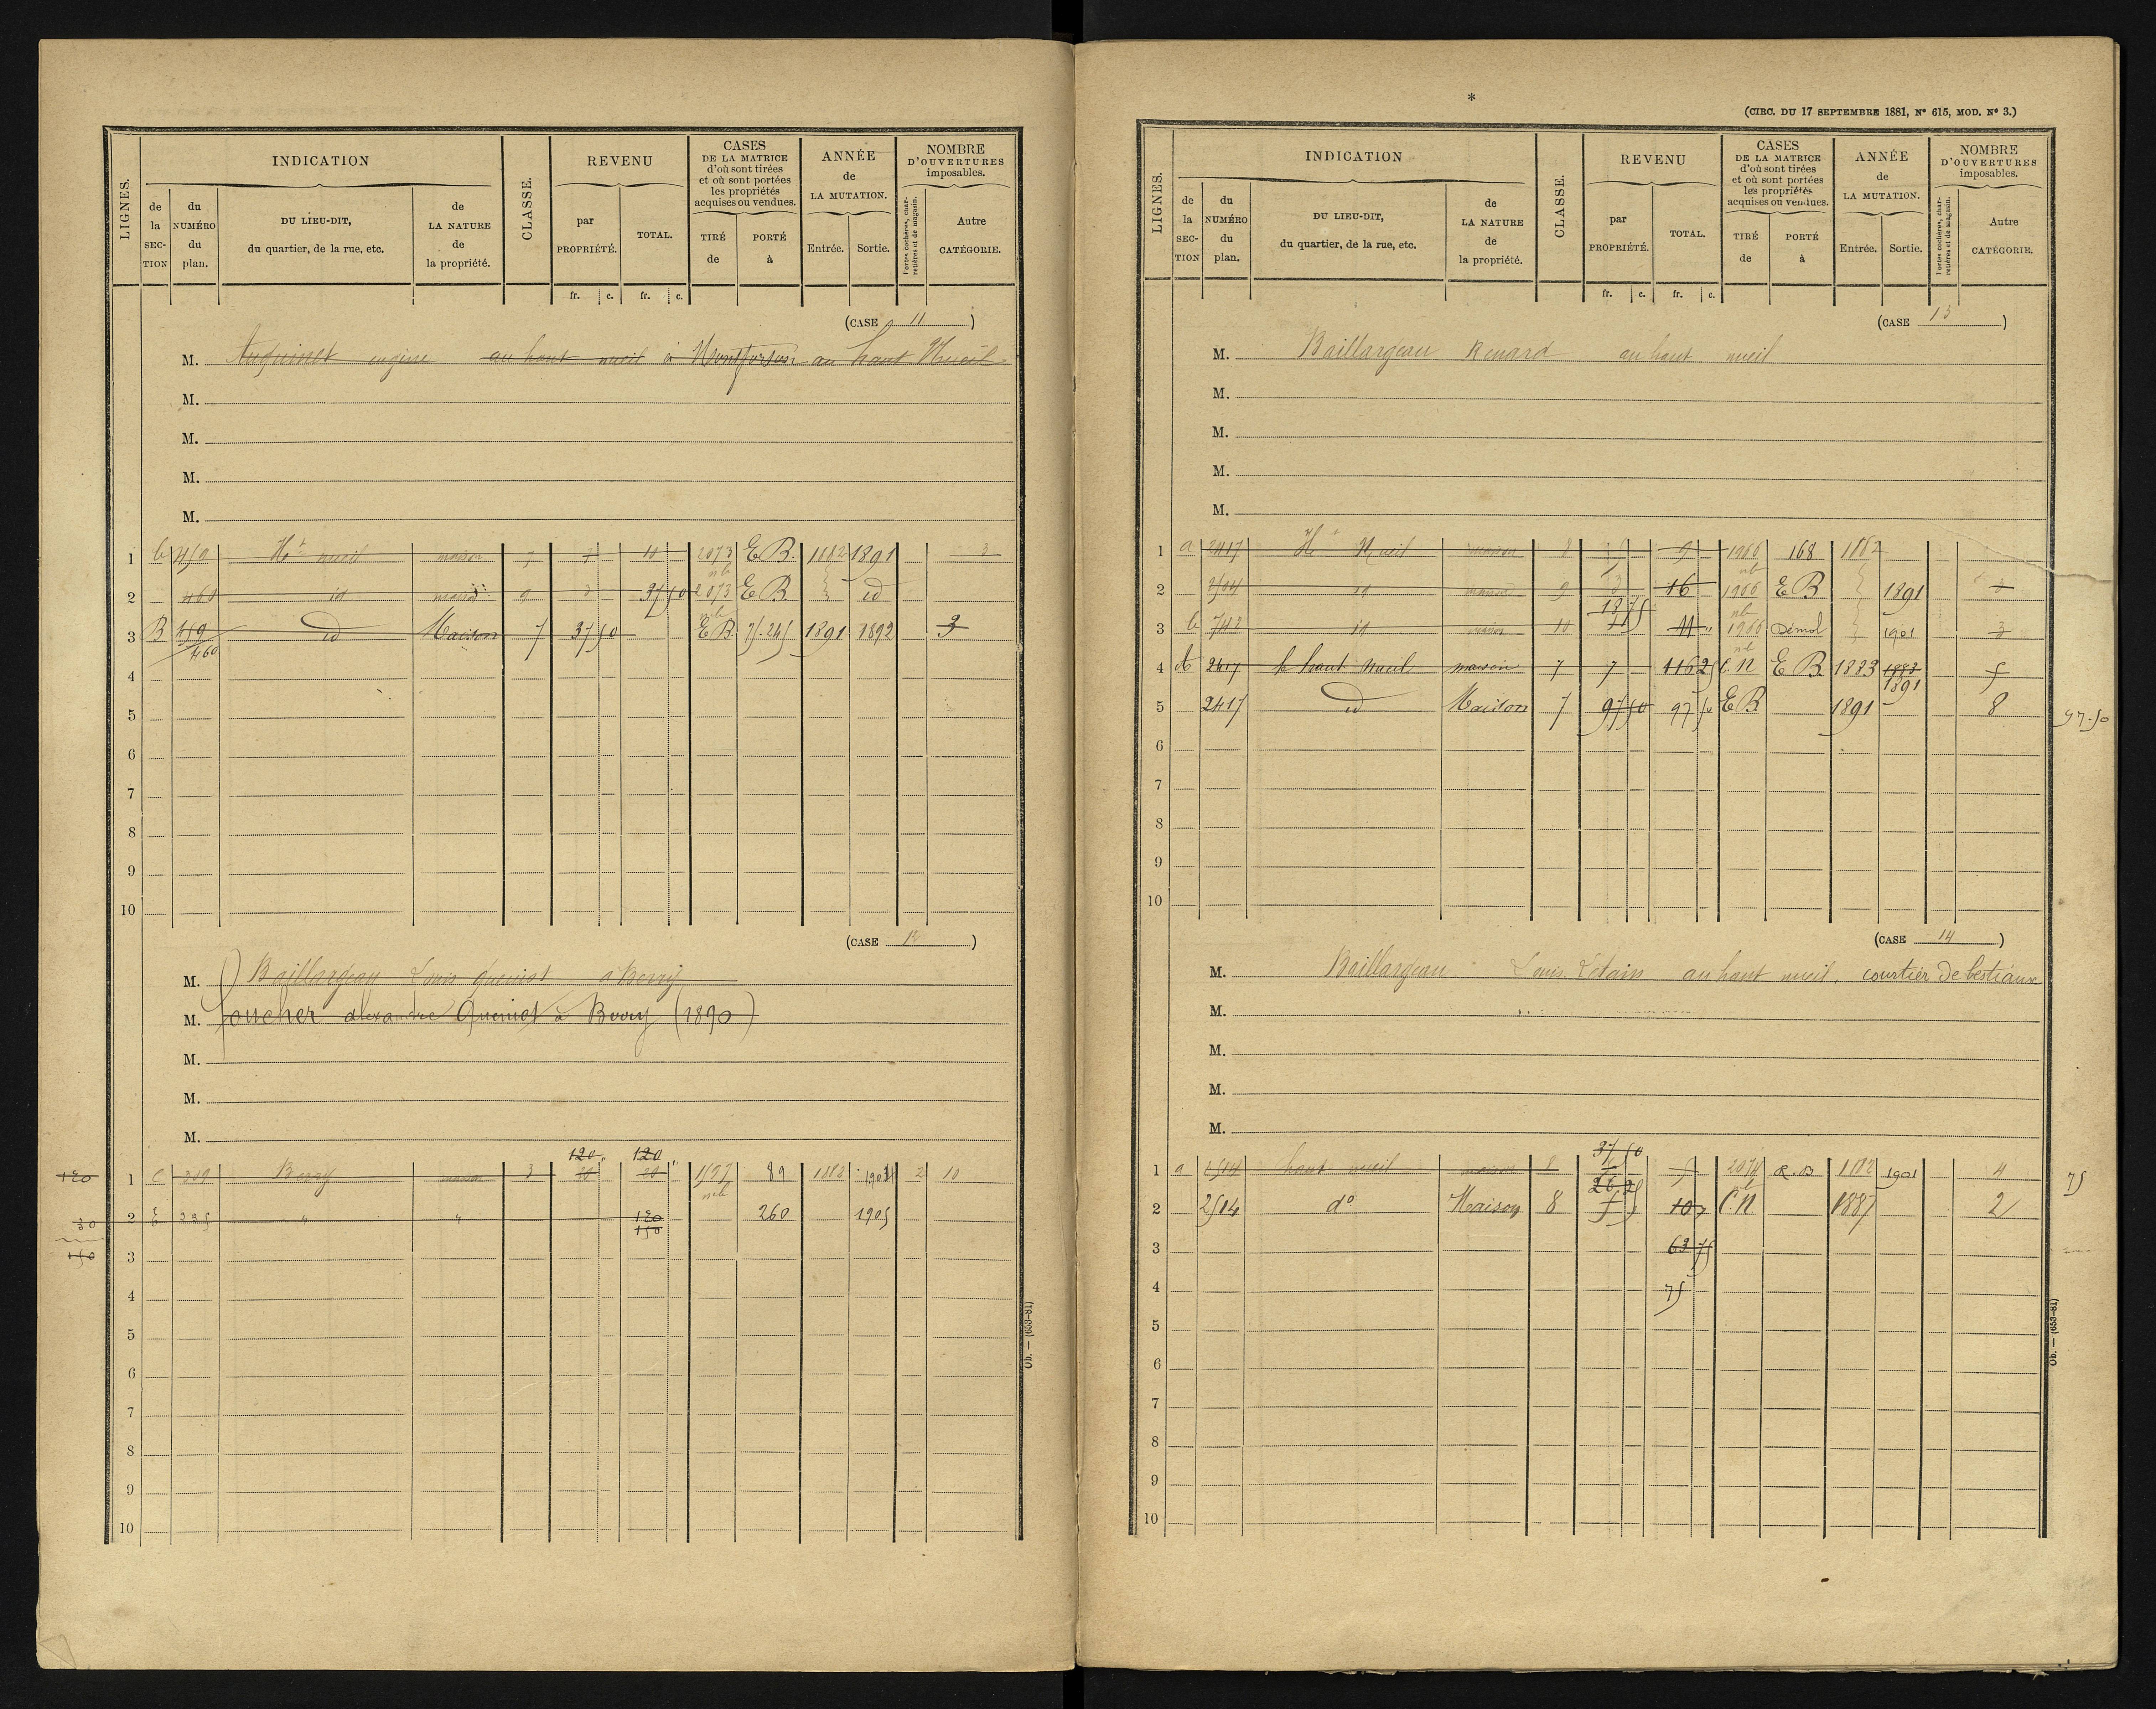 LIGNES.
INDICATION
de la SECTION
du NUMÉRO du plan.
DU LIEU-DIT, du quartier, de la rue, etc.
de LA NATURE de la propriété.
CLASSE.
REVENU
par PROPRIÉTÉ.
TOTAL.
CASES DE LA MATRICE d'où sont tirées et où sont portées les propriétés acquises ou vendues.
TIRÉ de
PORTÉ à
ANNÉE de LA MUTATION.
Entrée.
Sortie.
NOMBRE D'OUVERTURES imposables.
Portes cochères, charretières et de magasin.
Autre CATÉGORIE.
fr. c. fr. c.
(CASE 11)
M. eugène au haut nueil à au haut Nueil
M.
M.
M.
M.
1 b 459 Ht nueil maison 7 7 10 2073 E B. 1882 1891 3
2 460 id maison 9 3 37 50 2073 E B. id
3 B 459 460 id Maison 7 37 50 E B. 1891 1892 3
4
5
6
7
8
9
10
(CASE 12)
M. Baillargeau Louis queniot à Berry
M. Foucher alexandre Queniot à Berry (1890)
M.
M.
M.
120 120
120 1 C 319 Berry maison 3 20 20 89 2 10
30 2 E 235 " " 120 150 260 1905
150 3
4
5
6
7
8
9
10
Ob. — (653-81)
*
(CIRC. DU 17 SEPTEMBRE 1881, N° 615, MOD. N° 3.)
LIGNES.
INDICATION
de la SECTION
du NUMÉRO du plan.
DU LIEU-DIT, du quartier, de la rue, etc.
de LA NATURE de la propriété.
CLASSE.
REVENU
par PROPRIÉTÉ.
TOTAL.
CASES DE LA MATRICE d'où sont tirées et où sont portées les propriétés acquises ou vendues.
TIRÉ de
PORTÉ à
ANNÉE de LA MUTATION.
Entrée.
Sortie.
NOMBRE D'OUVERTURES imposables.
Portes cochères, charretières et de magasin.
Autre CATÉGORIE.
fr. c. fr. c.
(CASE 13)
M. Baillargeau Renard au haut nueil
M.
M.
M.
M.
1 a 2417 Ht Nueil maison 8 9 1966 168 1882
2 id maison 9 3 16 1966 E B 1891 3
18 75
3 b 742 id maison 10 11 1966 Démol 1901 3
4 2417 le haut nueil maison 7 7 116 25 C. N E B 1883 1883 1891 5
5 2417 id Maison 7 97 50 97 50 E B 1891 8 97.50
6
7
8
9
10
(CASE 14)
M. Baillargeau Louis au haut nueil, courtier de bestiaux
M.
M.
M.
M.
37 50
1 a 2514 haut nueil maison 8 5 2074 1882 1901 4 75
26 25
2 2514 d° Maison 8 5 10 C. N 1887 2
3 63 75
4 75
5
6
7
8
9
10
Ob. — (653-81)